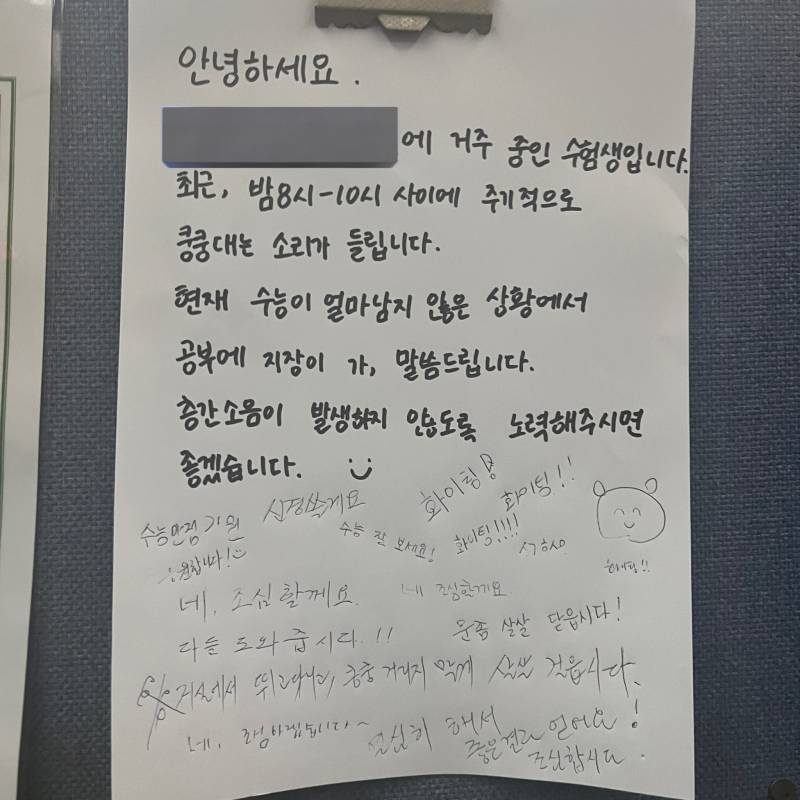 안녕하세요.
에 거주 중인 수험생입니다.
최근, 밤 8시-10시 사이에 주기적으로
쿵쿵대는 소리가 들립니다.
현재 수능이 얼마남지 않은 상황에서
공부에 지장이 가, 말씀드립니다.
층간소음이 발생하지 않도록 노력해주시면
좋겠습니다.
수능만점 기원
응원합니다!
신경쓸게요
수능 잘 보세요!
화이팅!
화이팅!!
화이팅!!!!
화이팅!!
네, 조심할께요.
네 조심할게요.
다들 도와줍시다.!!
문좀 살살 닫읍시다!
거실에서 뛰고 쿵쿵 거리지 말게 살살 걸읍시다.
네,
열심히 해서
좋은결과 얻어요!
조심합시다.